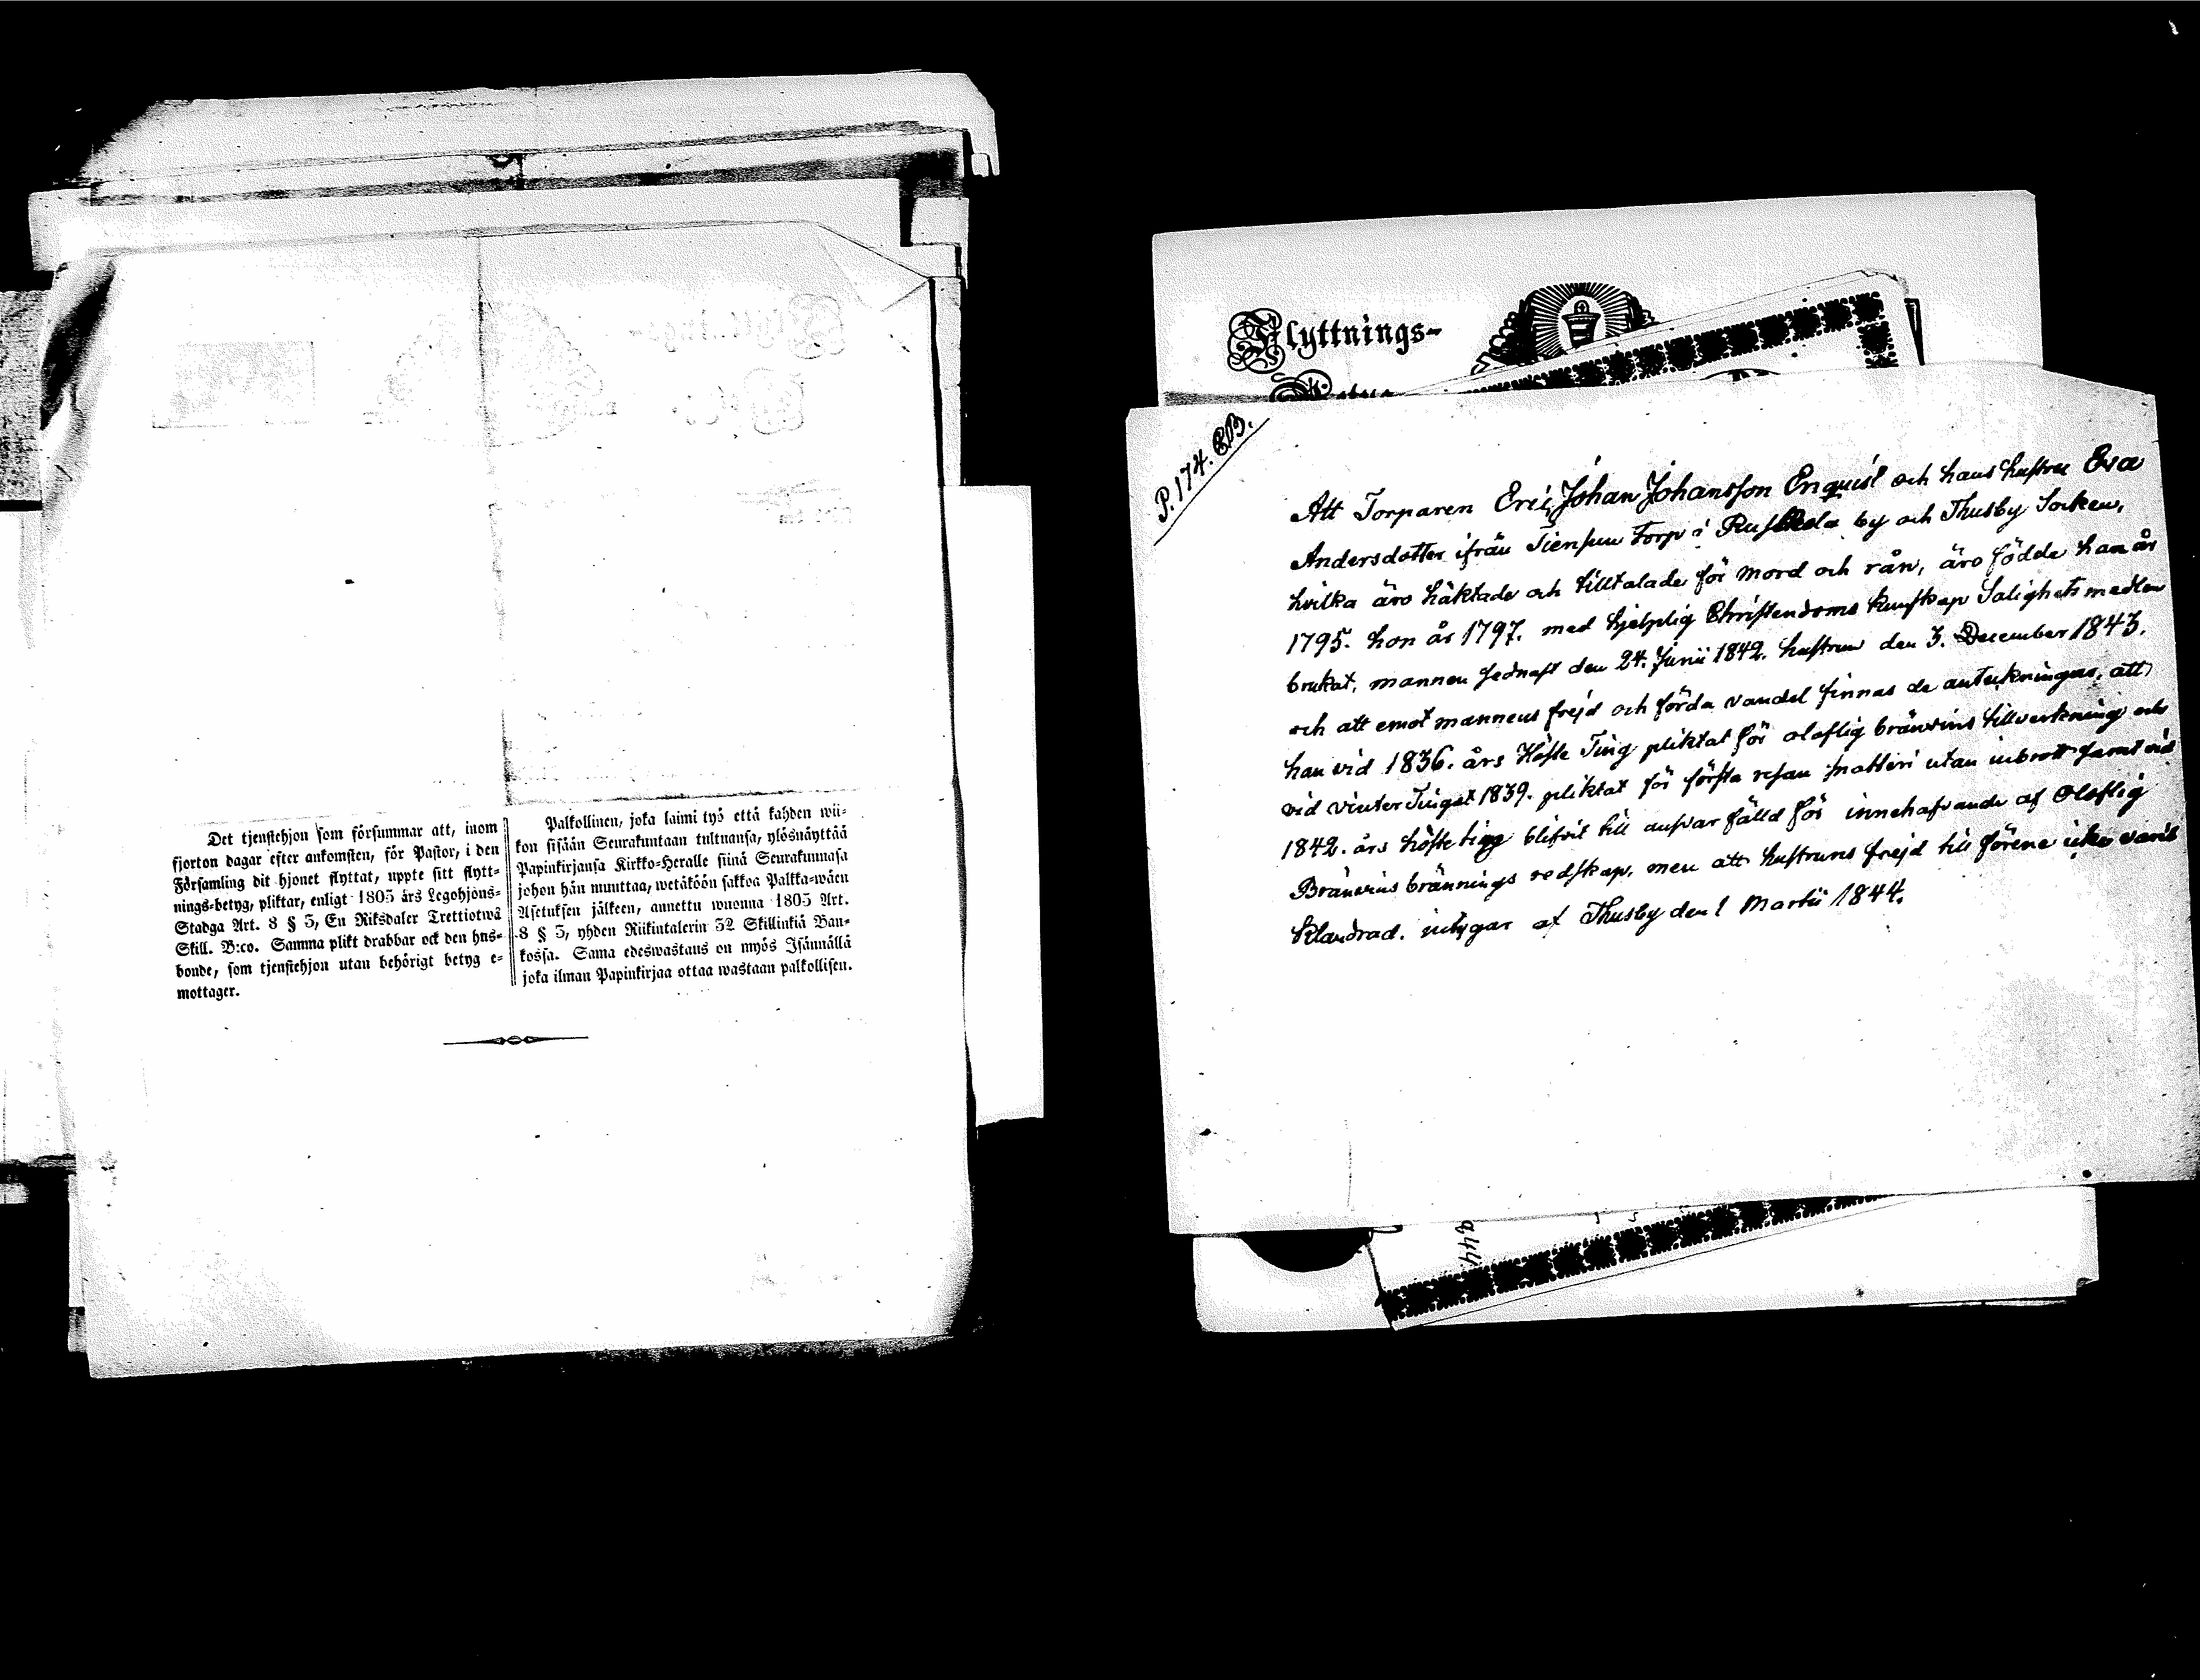 Det tjenstehjon som försummar att, inom
fjorton dagar efter ankomsten, för Pastor, i den
Församling dit hjonet flyttat, uppte sitt flytt-
nings-betyg, pliktar, enligt 1805 års Legohjons-
Stadga Art. 8 § 3, En Riksdaler Trettiotwå
Skill. B:co. Samma plikt drabbar ock den hus-
bonde, som tjenstehjon utan behörigt betyg e-
mottager.
Palkollinen, joka laimi lyö että kahden wii-
kon sisään Seurakuntaan tultuansa, ylösnäyttää
Papinkirjansa Kirkko-Heralle siinä Seurakunnasa
johon hän muuttaa, wetäköön sakkoa Palkka-wäen
Asetuksen jälkeen, annettu wuonna 1805 Art.
8 § 3, yhden Riikintalerin 32 Skillinkiä Ban-
kossa. Sama edeswastaus on myös Isännällä
joka ilman Papinkirjaa ottaa wastaan palkollisen.
Flyttnings-
P. 174. BB.
Att Torparen Eric Johan Johansson Enquist och hans hustru Eva
Andersdotter ifrån Tiensuu Torp i Ruskela by och Thusby Socken,
hvilka äro häktade och tilltalade för mord och rån, äro födde han år
1795. hon år 1797. med hjelplig Christendoms kunskap Salighetsmedlen
brukat, mannen sednast den 24. Junii 1842. hustrun den 3. December 1843.
och att emot mannens frejd och förda vandel finnas de anteckningar, att
han vid 1836. års Höste Ting pliktat för olaflig bränvins tillverkning och
vid vinter Tinget 1839. pliktat för första resan snatteri utan inbrott samt vid
1842. års höste ting blifvit till ansvar fälld för innehafvande af Olaflig
Bränvins brännings redskap, men att hustruns frejd till förene icke varit
klandrad. intygar af Thusby den 1 Martii 1844.